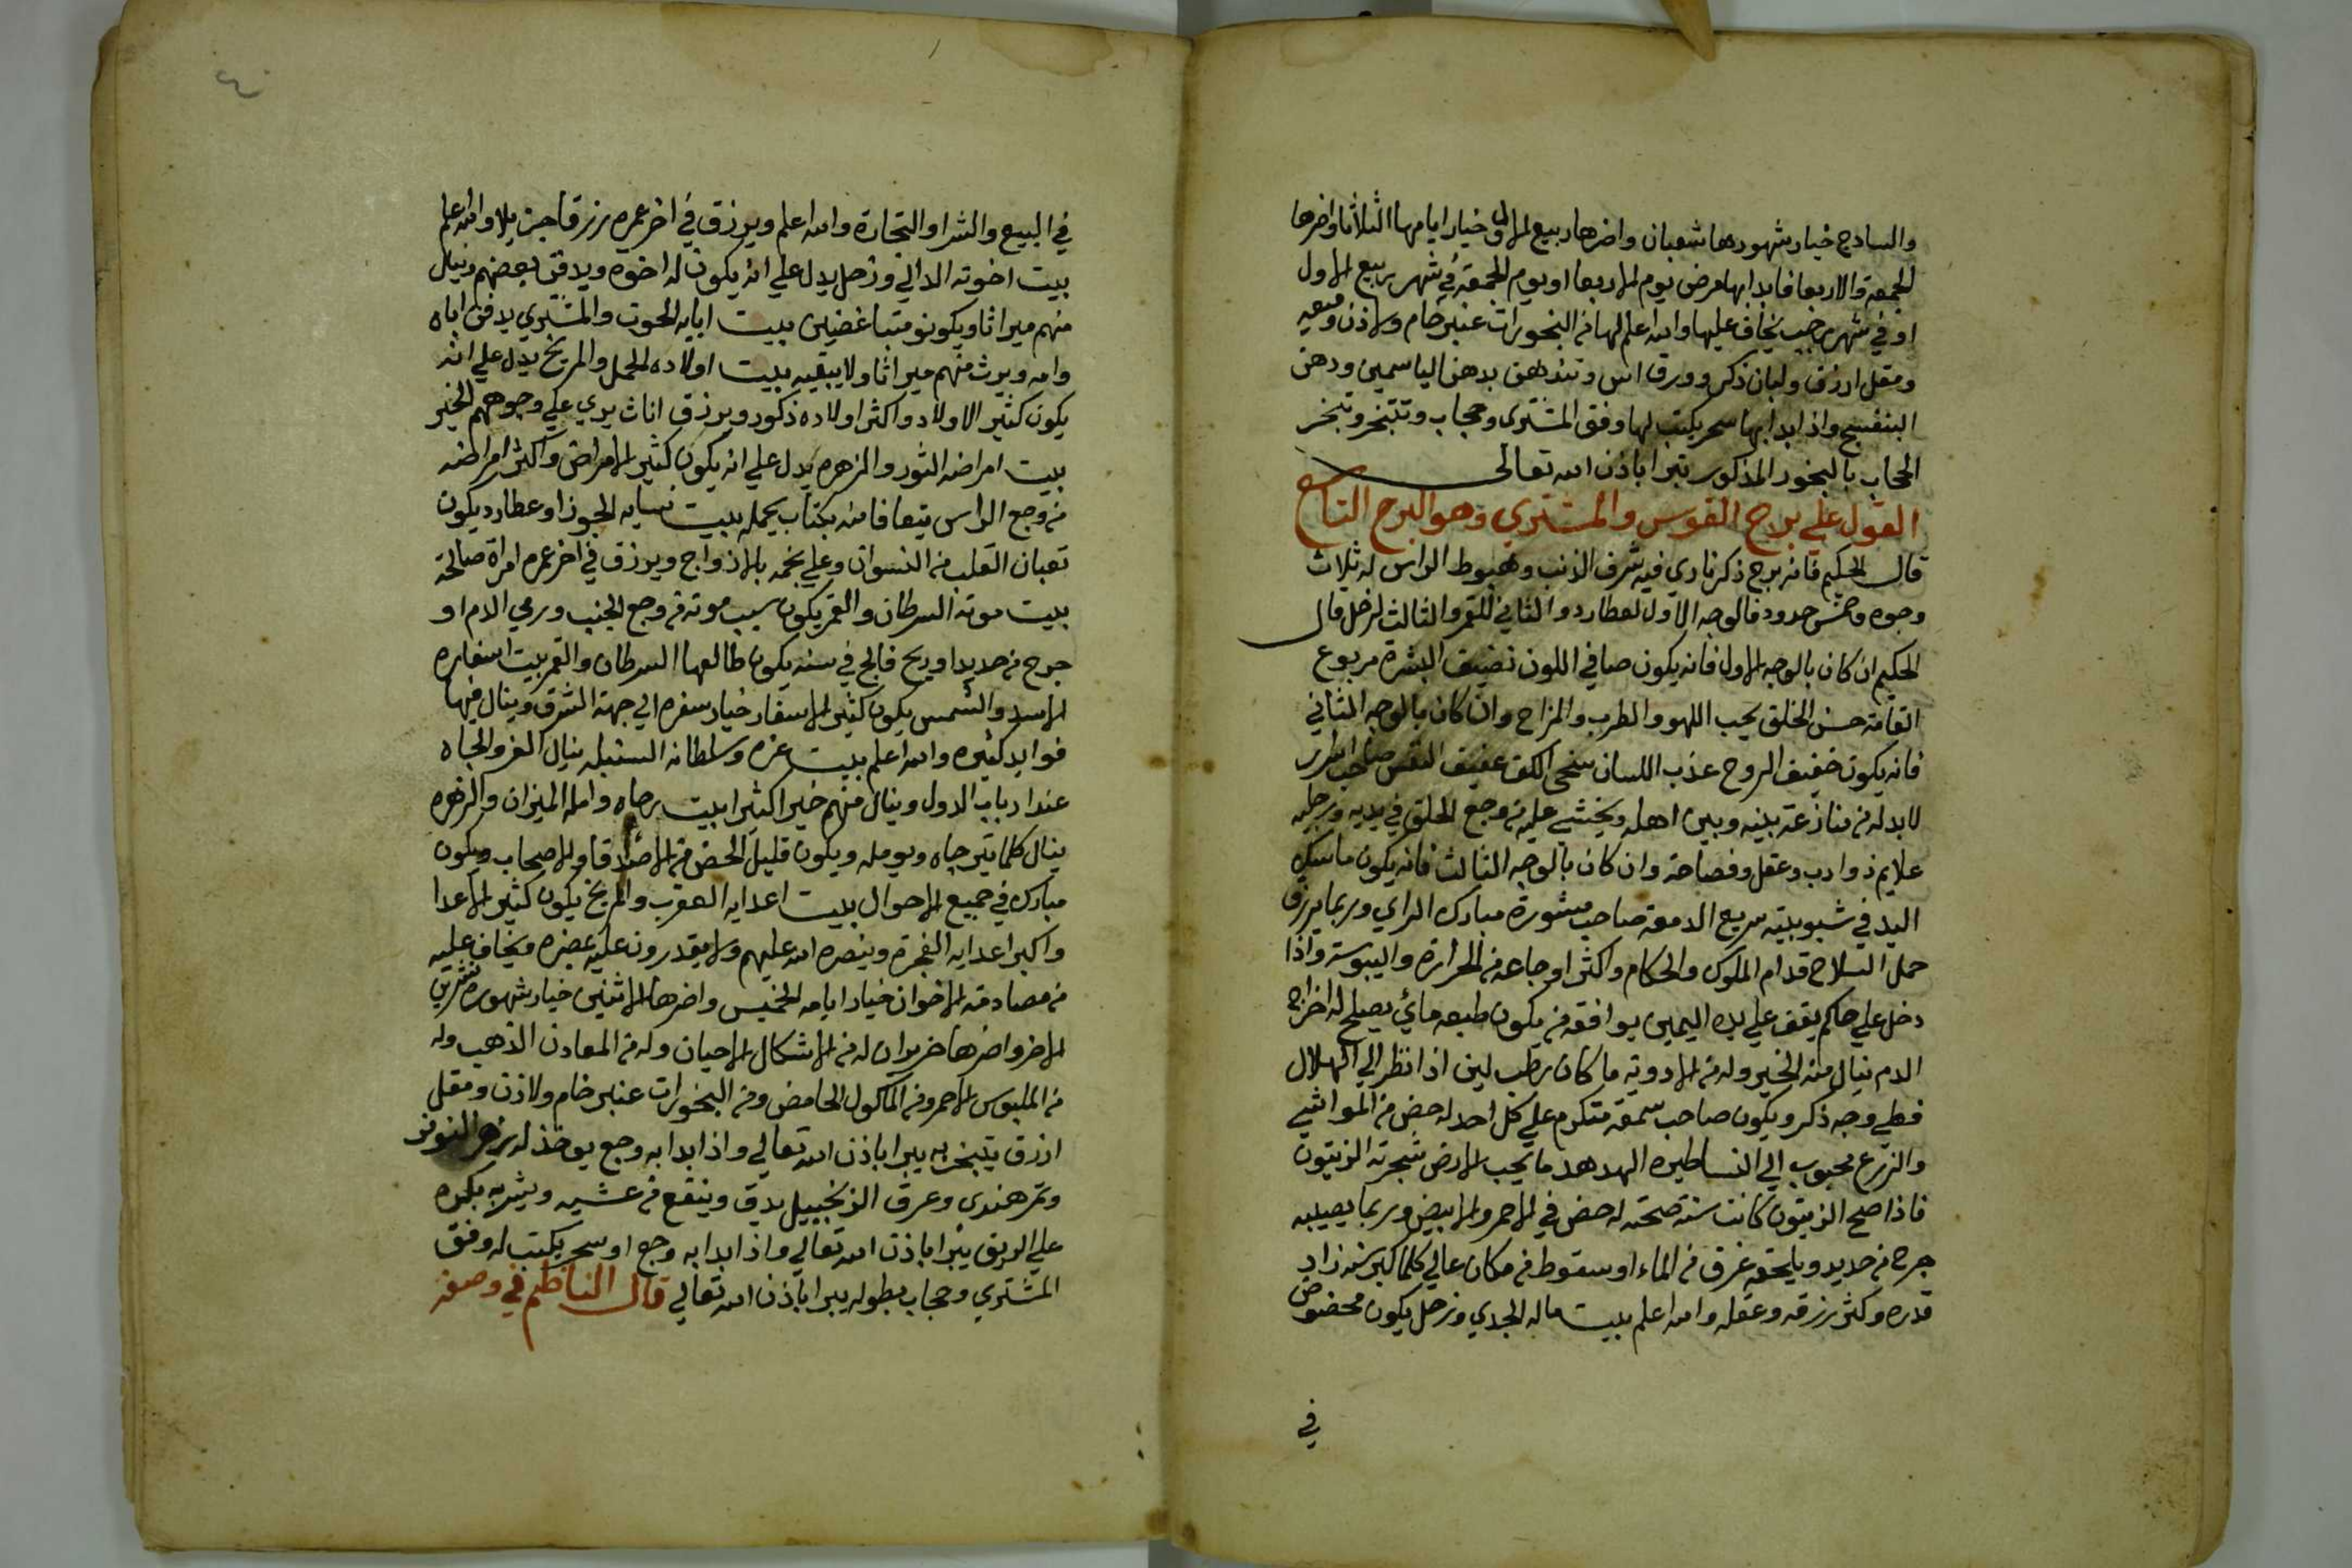 والسادج خيار شهورها شعبان واضرها ربيع الاول وخيار ايامها الثلاثا واضرها
الجمعة والاربعا فابدا بها مرض يوم الاربعا او يوم الجمعة في شهر ربيع الاول
او في شهر رجب يخاف عليها والله اعلم لها من البخورات عنبر خام ولادن وميعه
ومقل ازرق ولبان ذكر وورق اس وتندهن بدهن الياسمين ودهن
البنفسج واذا بدا بها سحر يكتب لها وفق المشترى وحجاب وتتبخر وتبخر
الحجاب بالبخور المذكور تبرا باذن الله تعالى
القول علي برج القوس والمشتري وهو البرج التاسع
قال الحكيم فانه برج ذكر ناري فيه شرف الذنب وهبوط الراس له ثلاث
وجوه وخمس حدود فالوجه الاول لعطارد والثاني للقمر والثالث لزحل قال
الحكيم ان كان بالوجه الاول فانه يكون صافي اللون نضيف البشرة مربوع
القامة حسن الخلق يحب اللهو والطرب والمزاح وان كان بالوجه الثاني
فانه يكون خفيف الروح عذب اللسان سخي الكف عفيف النفس صاحب
لابد له من منازعة بينه وبين اهله ويخشي عليه من وجع الحلق في يديه ورجليه
علايم ذو ادب وعقل وفصاحة وان كان بالوجه الثالث فانه يكون ماسك
اليد في شبوبيته سريع الدمعة صاحب مشورة مبارك الراي وربما يرزق
حمل السلاح قدام الملوك والحكام واكثر اوجاعه من الحرارة واليبوسة واذا
دخل علي حاكم يقف علي يده اليمين يوافقه من يكون طبعه مائي يصلح له اخراج
الدم ينال منه الخير وله من الادوية ما كان رطب لين اذا نظر الي الهلال
فطي وجه ذكر ويكون صاحب سمعة متكرم علي كل احد له حض من المواشي
والزرع محبوب الي النسا طيره الهدهد ما يحب الارض شجرته الزيتون
فاذا صح الزيتون كانت سنة صحته له حض في الاحمر والابيض وربما يصيبه
جرح من حديد ويلحقه غرق من الماء او سقوط من مكان عالي كلما كبر سنه زاد
قدره وكثر رزقه وعقله والله اعلم بيت ماله الجدي وزحل يكون محضوض
في
في البيع والشرا والتجارة والله اعلم ويرزق في اخر عمره رزقا جزيلا والله اعلم
بيت اخوته الدالي وزحل يدل علي انه يكون له اخوه ويدفن بعضهم وينال
منهم ميراثا ويكونو متباغضين بيت ابايه الحوت والمشتري يدفن اباه
وامه ويرث منهم ميراثا ولا يبقيه بيت اولاده الحمل والمريخ يدل علي انه
يكون كثير الاولاد واكثر اولاده ذكور ويرزق اناث يري علي وجوههم الخير
بيت امراضه الثور والزهره يدل علي انه يكون كثير الامراض واكثر امراضه
من وجع الراس يتعافا منه بكتاب يحمله بيت نسايه الجوزا وعطارد يكون
تعبان القلب من النسوان وعلي نجمه بالازواج ويرزق في اخر عمره امراة صالحة
بيت موته السرطان والقمر يكون سبب موته من وجع الجنب ورمي الدم او
جرح من حديد او ريح فالج في سنه يكون طالعها السرطان والقمر بيت اسفاره
الاسد والشمس يكون كثير الاسفار خيار سفره الي جهة الشرق وينال فيها
فوايد كثيره والله اعلم بيت عزه وسلطانه السنبله ينال العز والجاه
عند ارباب الدول وينال منهم خيرا كثيرا بيت رجاه وامله الميزان والزهره
ينال كلما يترجاه ويومله ويكون قليل الحض من الاصدقا والاصحاب ويكون
مبارك في جميع الاحوال بيت اعدايه العقرب والمريخ يكون كثير الاعدا
واكبر اعدايه الفجرة وينصره الله عليهم ولا يقدرون عليه بمضره ويخاف عليه
من مصادقة الاخوان خيار ايامه الخميس واضرها الاثنين خيار شهوره تشرين
الاخر واضرها حزيران له من الاشكال الاحيان وله من المعادن الذهب وله
من الملبوس الاحمر ومن الماكول الحامض ومن البخورات عنبر خام ولادن ومقل
ازرق يتبخر به يبرا باذن الله تعالي واذا بدا به وجع يوخذ له
وتمر هندي وعرق الزنجبيل يدق وينقع من عشيه ويشربه بكره
علي الريق يبرا باذن الله تعالي واذا بدا به وجع او سحر يكتب له وفق
المشتري وحجاب بطوله يبرا باذن الله تعالي قال الناظم في وصفه